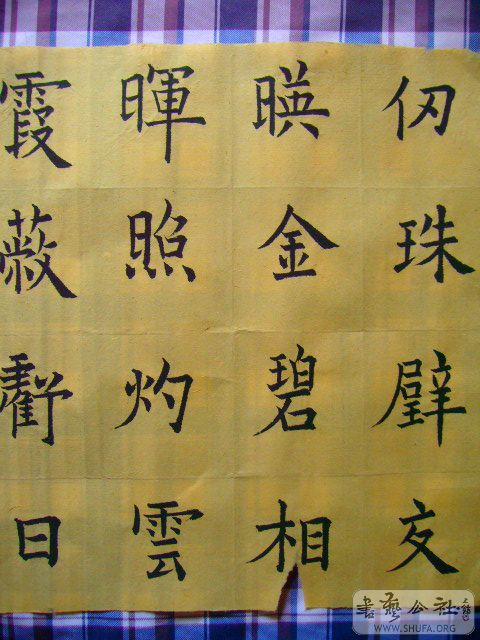 仞珠壁交
暎金碧相
暉照灼雲
霞蔽虧日
書藝公社
WWW.SHUFA.ORG